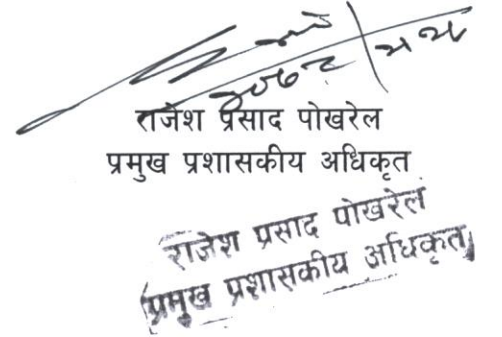 २०७८
राजेश प्रसाद पोखरेल
प्रमुख प्रशासकीय अधिकृत
राजेश प्रसाद पोखरेल
प्रमुख प्रशासकीय अधिकृत